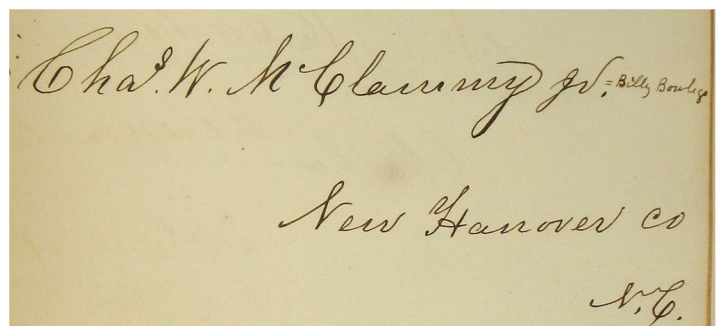 Chas. W. McClammy Jr. = Billy Bowlegs
New Hanover co
N.C.